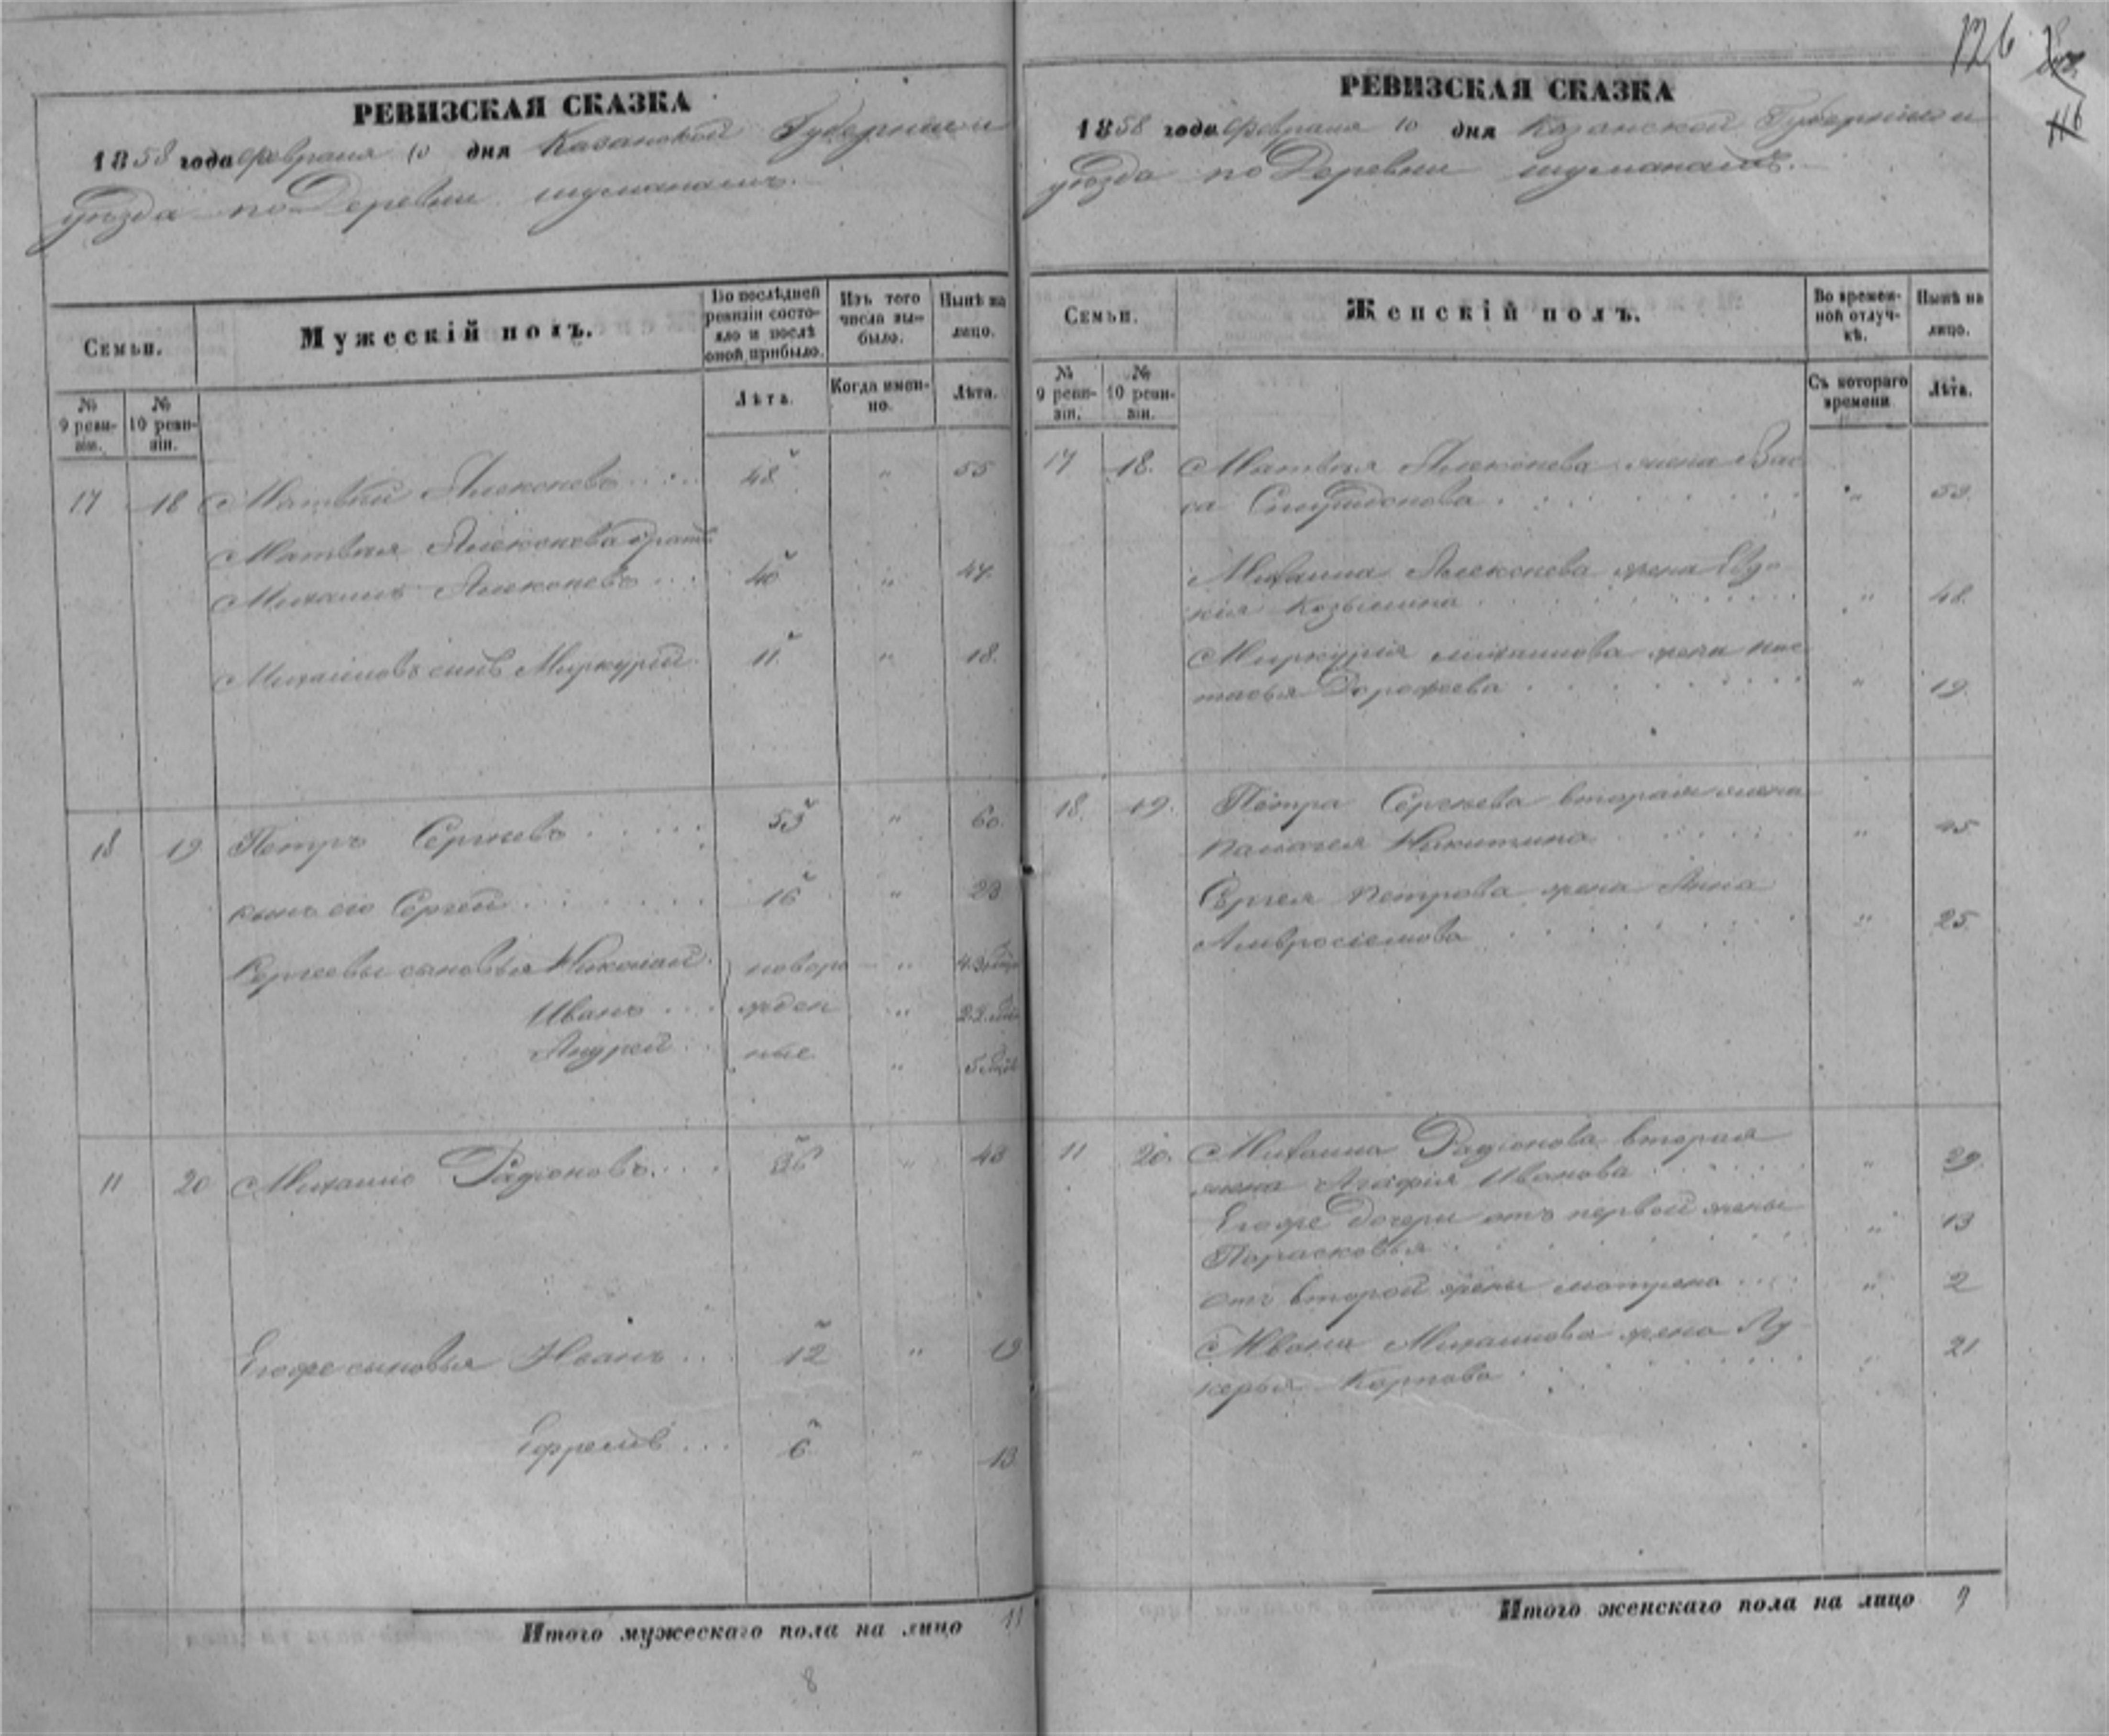 126
116
РЕВИЗСКАЯ СКАЗКА
1858 года февраля 10 дня Казанской Губернии и
уезда по Деревни шуманамъ.
Семьи.
Мужескій полъ.
По послѣдней ревизіи состояло и послѣ оной прибыло.
Изъ того числа выбыло.
Нынѣ на лицо.
№ 9 ревизіи.
№ 10 ревизіи.
Лѣта.
Когда именно.
Лѣта.
17 18 Матвѣй Алексѣевъ 48 " 55
Матвѣя Алексѣева братъ
Михаилъ Алексѣевъ 40 " 47.
Михаиловъ сынъ Миркурій 11 " 18.
18 19 Петръ Сергѣевъ 53 " 60.
сынъ его Сергей 16 " 23
Сергеевы сыновья Николай новоро "
Иванъ жден "
Андрей ные "
11 20 Михаило Радионовъ 36 " 43
Егоже сыновья Иванъ 12 " 19
Ефремъ 6 " 13
Итого мужескаго пола на лицо 11
8
РЕВИЗСКАЯ СКАЗКА
1858 года февраля 10 дня Казанской Губерніи и
уѣзда по Деревни шуманамъ.
Семьи.
Женскій полъ.
Во временной отлучкѣ.
Нынѣ на лицо.
№ 9 ревизіи.
№ 10 ревизіи.
Съ котораго времени
Лѣта.
17 18. Матвѣя Алексѣева жена Вас
са Спиридонова "
Михаила Алексѣева жена Евдо
кія Козьмина " 48.
Миркурія михаилова жена нас
тасья Дорофеева " 19.
18. 19. Петра Сергѣева вторая жена
палагея Никитина " 45
Сергея петрова жена Анна
Амвросіемова " 25
11 20. Михаила Радіонова вторая
жена Агафія Иванова " 29.
Егоже дочери отъ первой жены
Парасковья " 13
отъ второй жены матрена " 2
Ивана Михаилова жена Лу
керья Карпова " 21
Итого женскаго пола на лицо 9